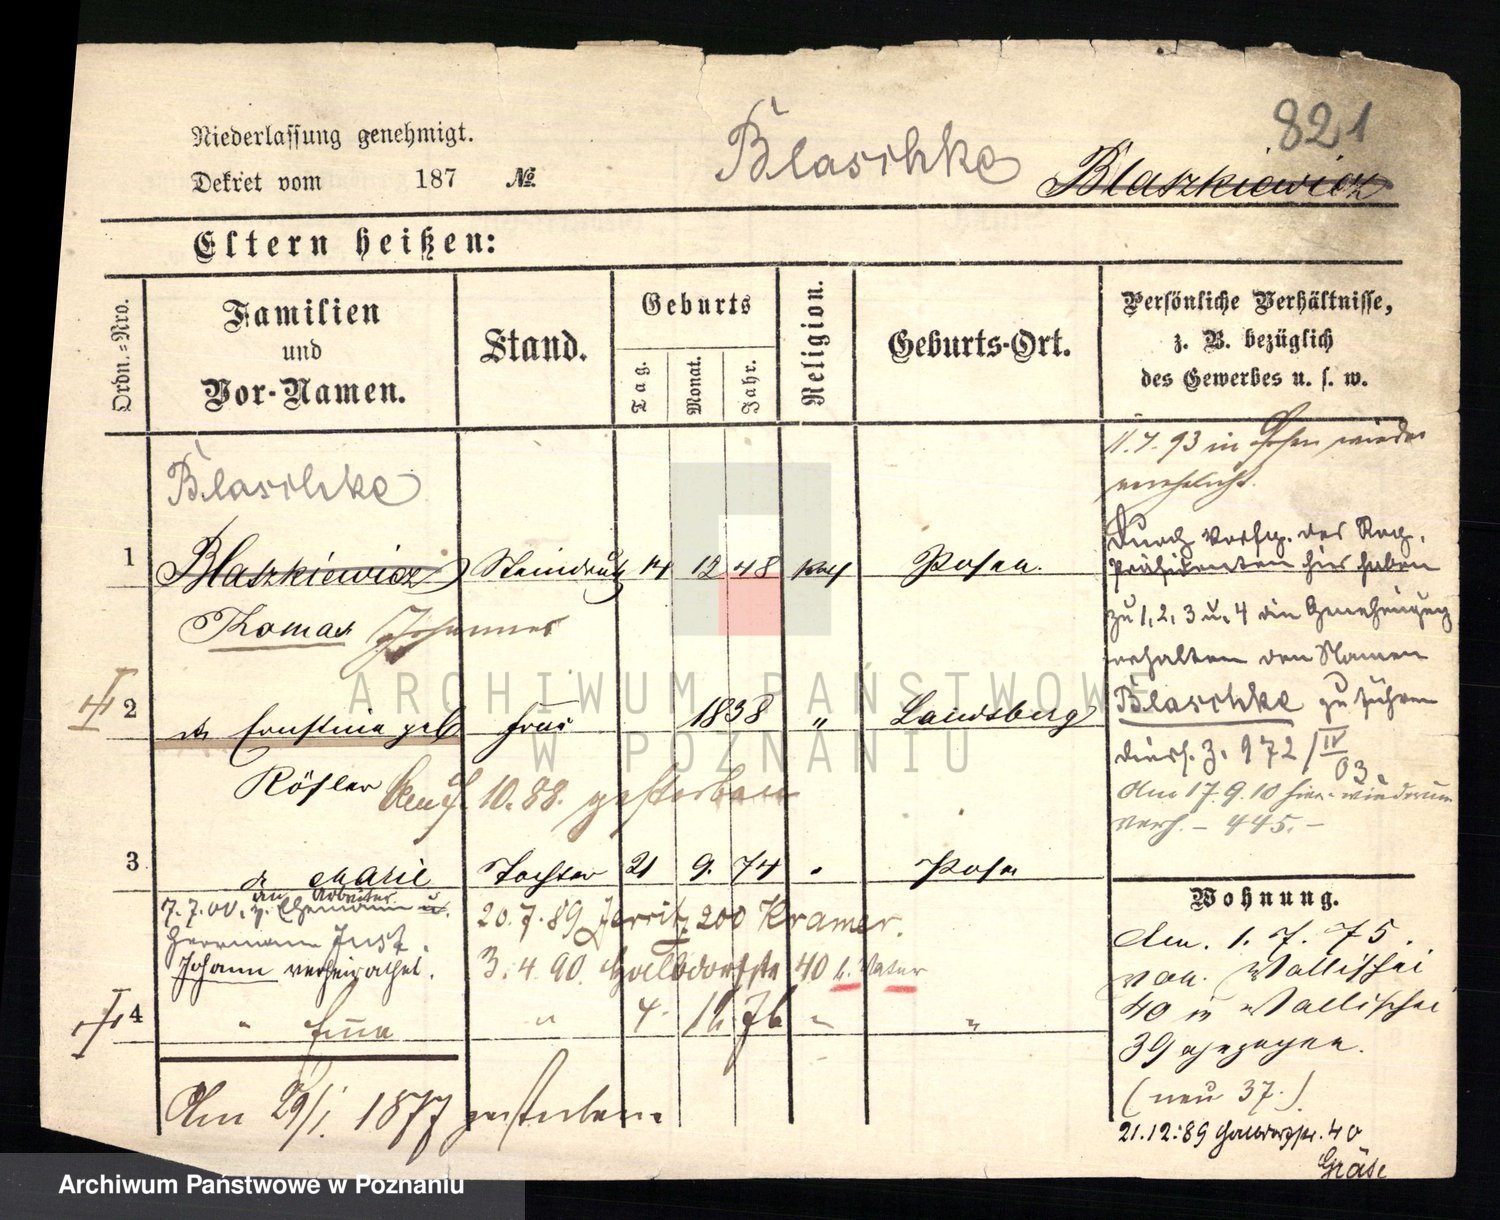 821
Niederlassung genehmigt.
Blaschke Blaszkiewicz
Dekret vom 187 №
Eltern heißen:
Ordn.=Nro.
Familien
und
Vor-Namen.
Stand.
Geburts
Tag.
Monat.
Jahr.
Religion.
Geburts-Ort.
Persönliche Verhältnisse,
z. B. bezüglich
des Gewerbes u. s. w.
11.7.93 in Posen wieder
verehelicht.
Blaschke
1 Blaszkiewicz Steindruck 14 12 48 kath Posen.
Thomas Johannes
Durch Verfg. des Reg.
Präsidenten hier haben
zu 1, 2, 3 u. 4 die Genehmigung
erhalten den Namen
Blaschke zu führen
2 Ernstine geb Frau 1838 " Landsberg
972/IV 03.
Rösler 10.88. gestorben
Am 17.9.10 hier wiederum
verh. - 445. -
3 Marie Tochter 21 9. 74 " Posen
7.7.00. an Arbeiter
Ehemann u.
Herrmann Just.
Johann verheirathet.
20.7.89 200 Kramer.
3.4.90. Halbdorfstr 40 b. Vater
4 " Emma " 4. 12. 76 " "
Am 29/1. 1877 gestorben.
Wohnung.
Am. 1. 7. 75.
von Wallischei
40 n Wallischei
39 gezogen.
(neu 37.)
21.12.89 Halbdorfstr. 40
Gräse
ARCHIWUM PAŃSTWOWE
W POZNANIU
Archiwum Państwowe w Poznaniu